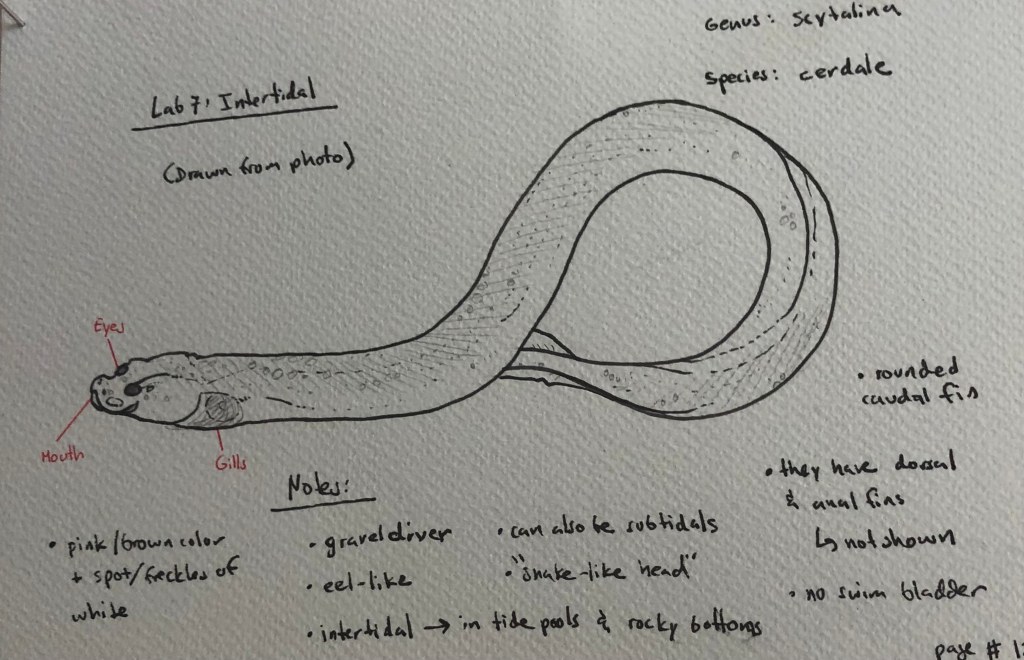 Genus: Scytalina
Species: cerdale
Lab 7: Intertidal
(Drawn from photo)
Eyes
Mouth
Gills
Notes:
• pink/brown color
+ spot/freckles of
white
• graveldiver
• eel-like
• intertidal → in tide pools & rocky bottoms
• can also be subtidals
• "snake-like head"
• rounded
caudal fin
• they have dorsal
& anal fins
↳ not shown
• no swim bladder
page #